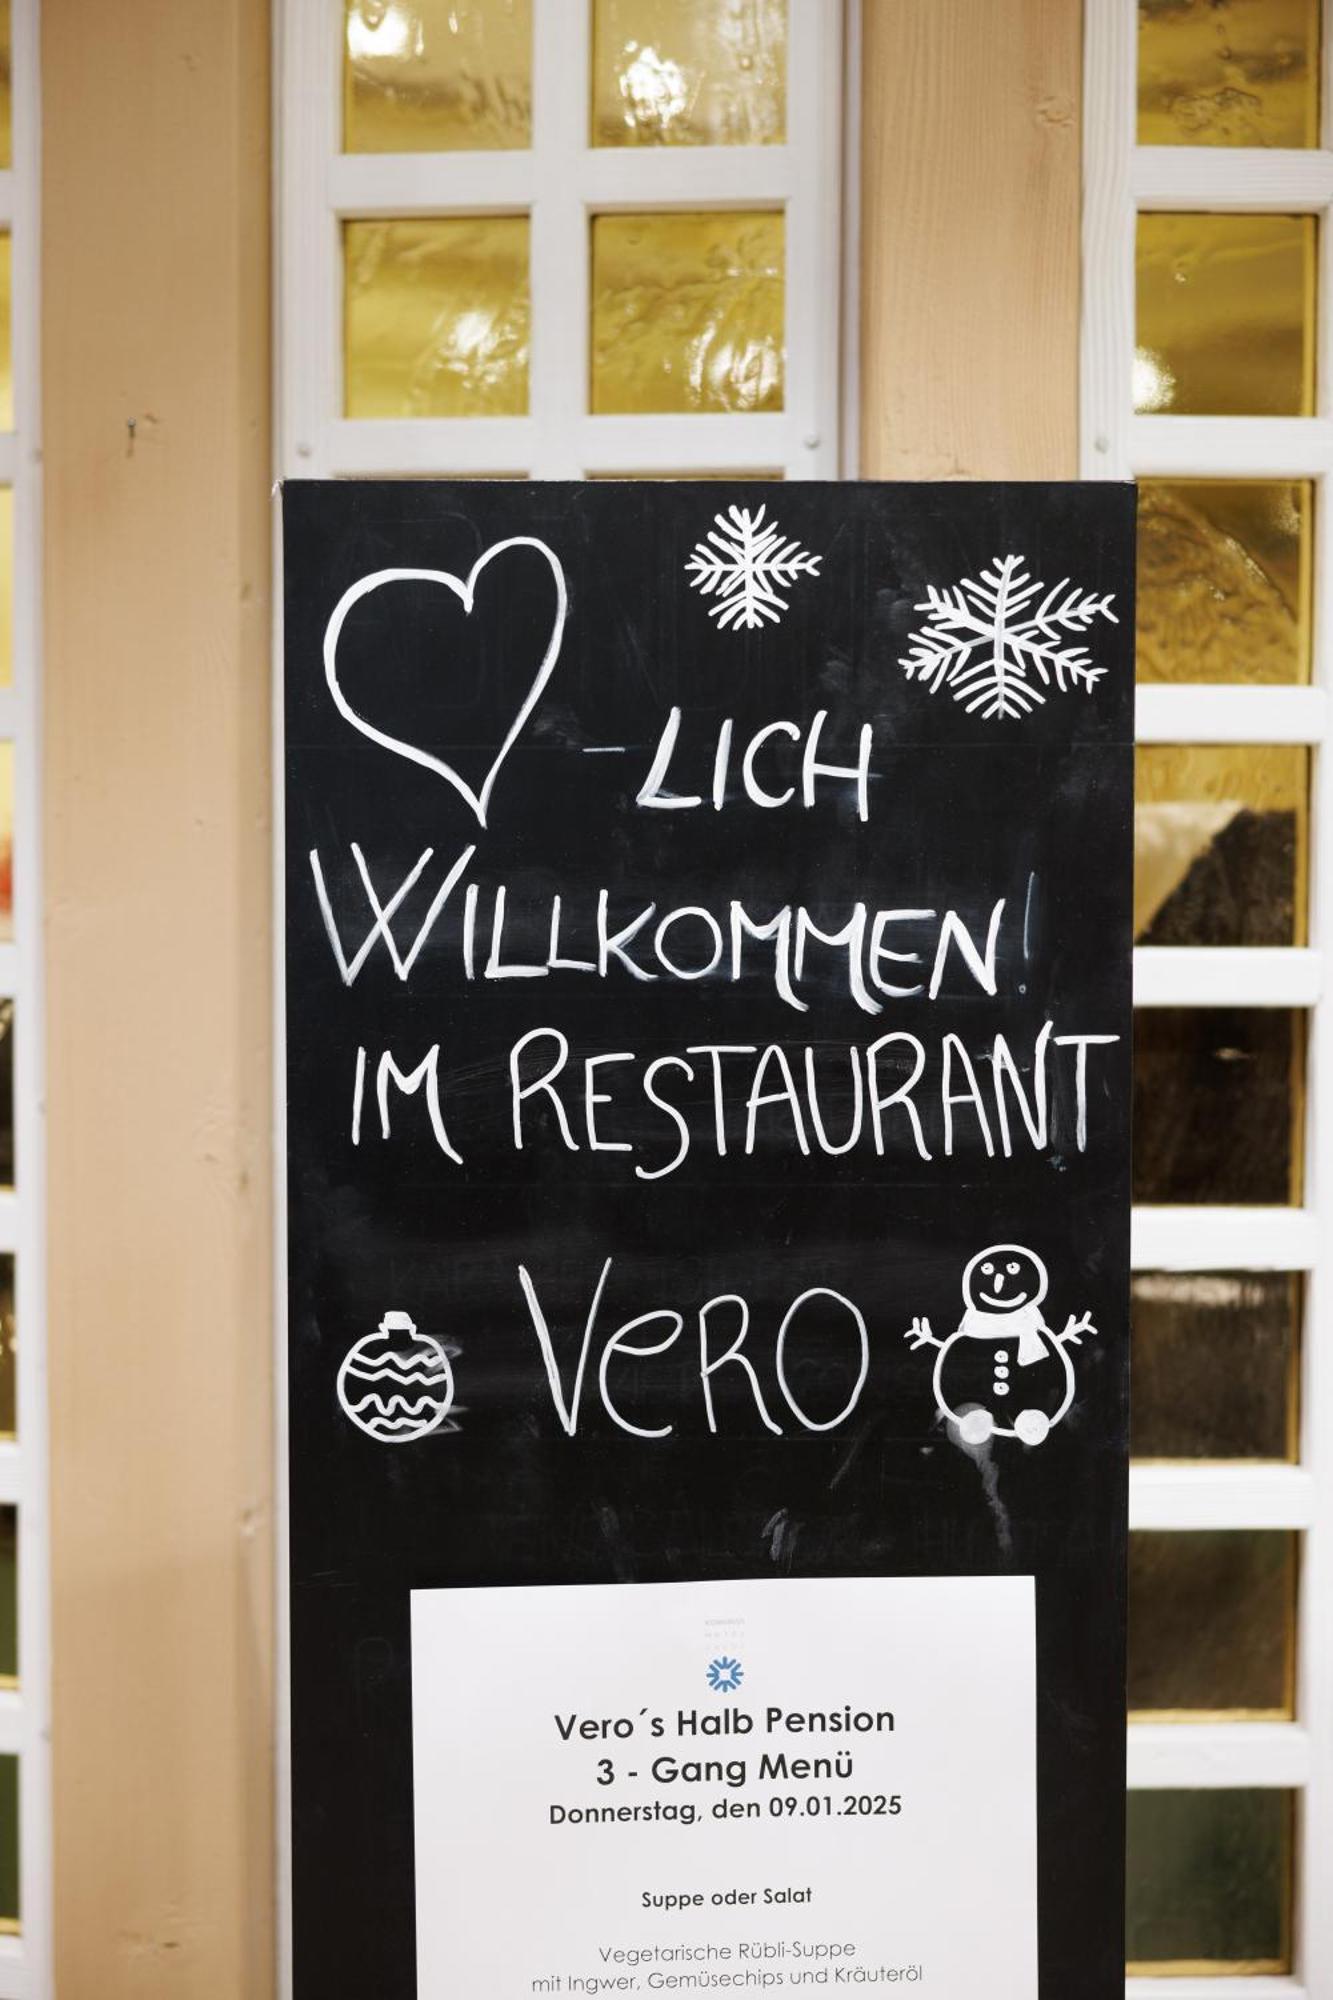 -LICH
WILLKOMMEN!
IM RESTAURANT
VeRO
Vero´s Halb Pension
3 - Gang Menü
Donnerstag, den 09.01.2025
Suppe oder Salat
Vegetarische Rübli-Suppe
mit Ingwer, Gemüsechips und Kräuteröl